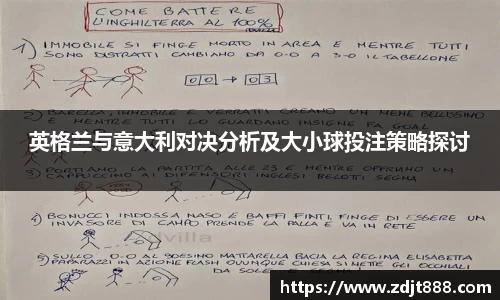 COME BATTERE
L'INGHILTERRA AL 100%
1) IMMOBILE SI FINGE MORTO IN AREA E MENTRE TUTTI
SONO DISTRATTI CAMBIAMO DA 0-0 A 3-0 IL TABELLONE
00 → 03
2) BARELLA, IMMOBILE E VERRATTI CREANO UN MEME BELLISSIMO
E MENTRE TUTTI LO GUARDANO INSIGNE FA GOAL
英格兰与意大利对决分析及大小球投注策略探讨
3) PORTIAMO LA PARTITA ALLE 23 E MENTRE OFFRIAMO UN
CAPPUCCINO AI DIFENSORI INGLESI BELOTTI SEGNA
4) BONUCCI INDOSSA NASO E BAFFI FINTI, FINGE DI ESSERE UN
INVASORE DI CAMPO PRENDE LA PALLA E VA IN RETE
5) SULLO 0-0 AL 90ESIMO MATTARELLA BACIA LA REGINA ELISABETTA
PAPARAZZI IN AZIONE FLASH OVUNQUE CHIESA SI METTE GLI OCCHIALI
DA SOLE E SEGNA
https://www.zdjt888.com